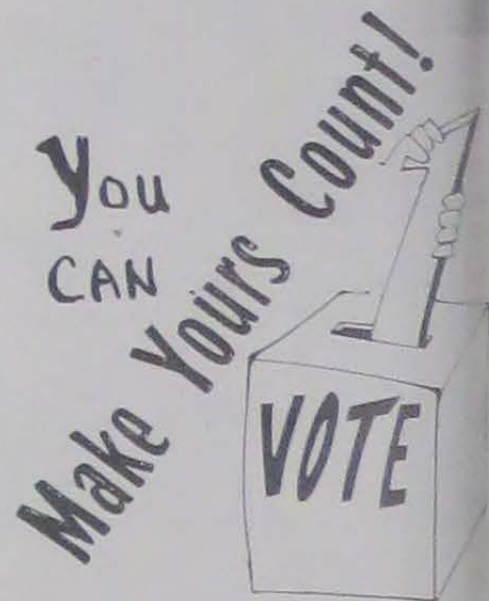 You
CAN
Make Yours Count!
VOTE